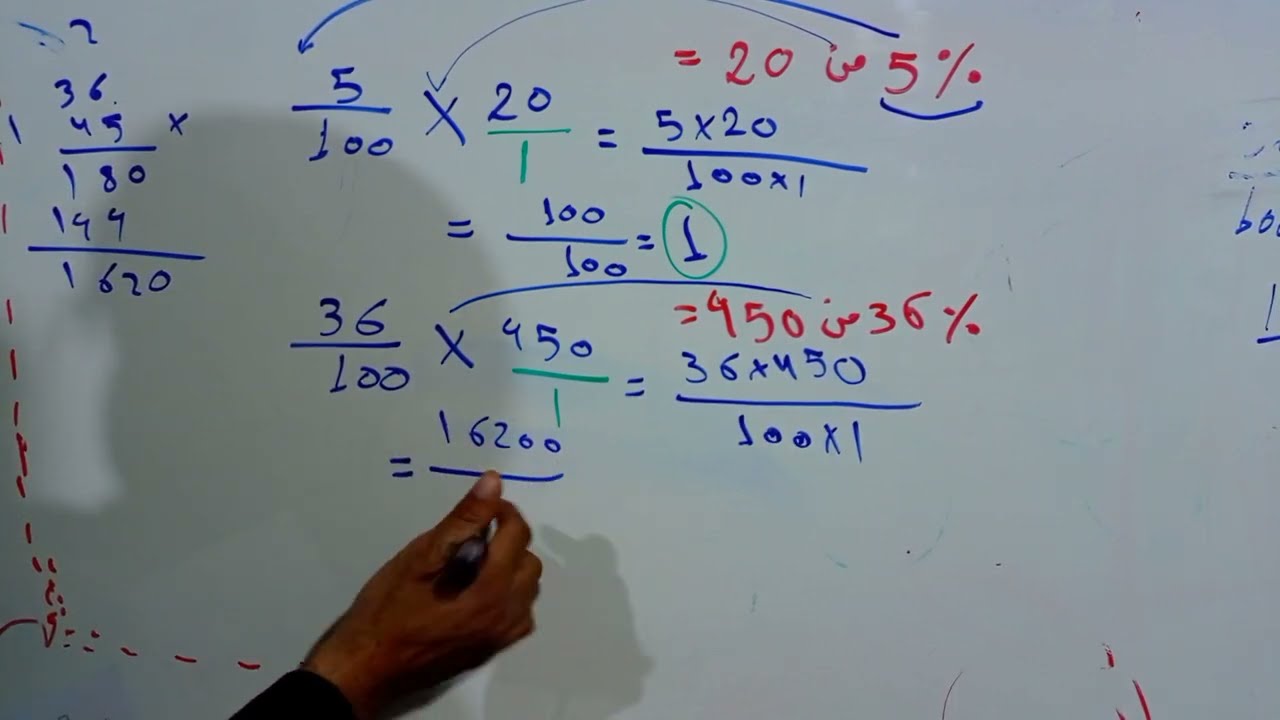 2
36
45 ×
180
144
1620
5% من 20 =
5/100 × 20/1 = 5×20/100×1
= 100/100 = 1
36% من 450 =
36/100 × 450/1 = 36×450/100×1
= 16200